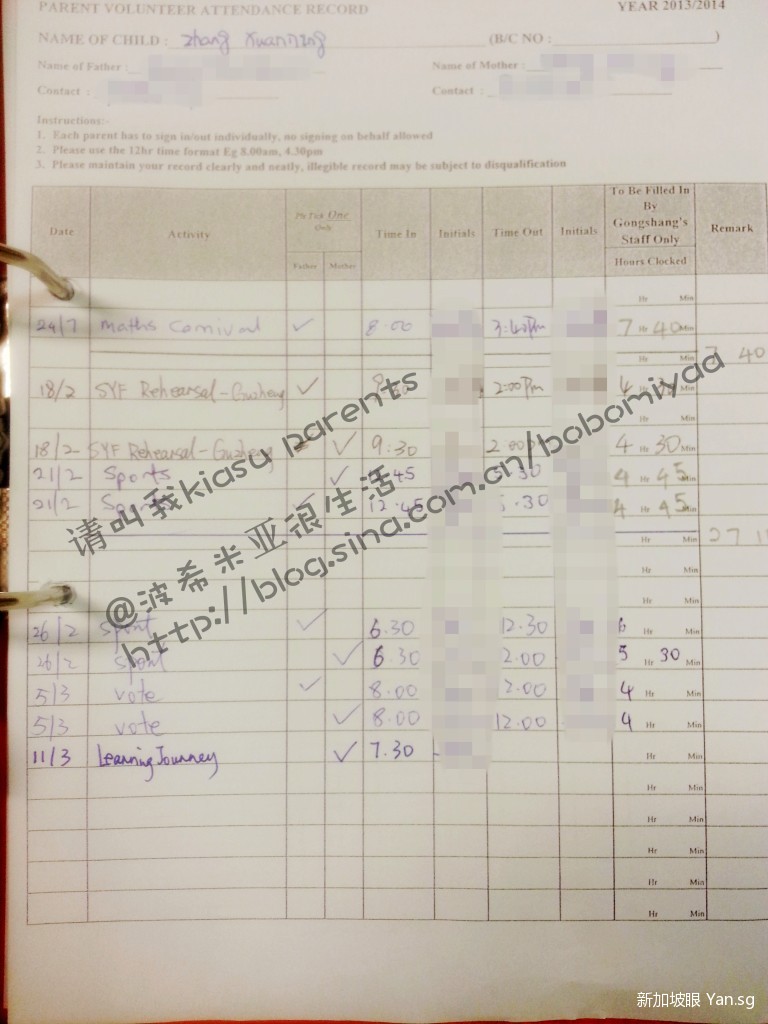 PARENT VOLUNTEER ATTENDANCE RECORD YEAR 2013/2014
NAME OF CHILD : Zhang (B/C NO : )
Name of Father : Name of Mother :
Contact : Contact :
Instructions:-
1. Each parent has to sign in/out individually, no signing on behalf allowed
2. Please use the 12hr time format Eg 8.00am, 4.30pm
3. Please maintain your record clearly and neatly, illegible record may be subject to disqualification
Date Activity Pls Tick One Only Time In Initials Time Out Initials To Be Filled In By Gongshang's Staff Only Remark
Father Mother Hours Clocked
Hr Min
24/7 Maths Carnival ✓ 8.00 3:40pm 7 Hr 40 Min
Hr Min 7 40
18/2 SYF Rehearsal - Guzheng ✓ 2:00pm 4
Hr Min
18/2 SYF Rehearsal - Guzheng ✓ 9:30 4 30 Min
21/2 Sports ✓ 4 Hr 45
21/2 ✓ 12.45 4 Hr 45 Min
Hr Min
Hr Min
Hr Min
26/2 sport ✓ 6.30 12.30 6 Hr Min
26/2 sport ✓ 6.30 5 Hr 30 Min
5/3 vote ✓ 8.00 4 Hr Min
5/3 vote ✓ 8.00 12.00 4 Hr Min
11/3 Learning Journey ✓ 7.30 Hr Min
Hr Min
Hr Min
Hr Min
Hr Min
Hr Min
请叫我kiasu parents
@波希米亚很生活
http://blog.sina.com.cn/bobomiyaa
新加坡眼 Yan.sg